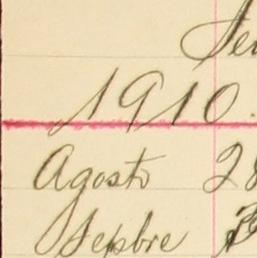 1910.
Agosto 28
Sepbre